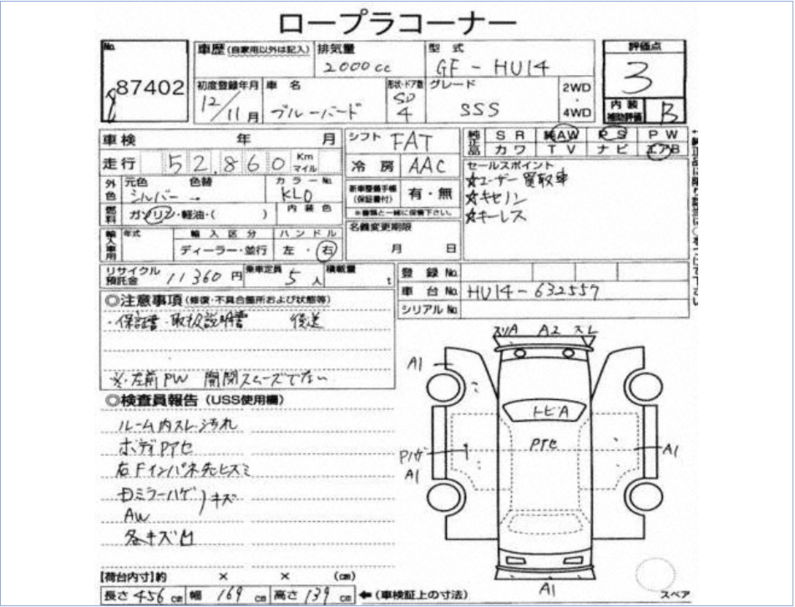 ロープラコーナー
No.
87402
車歴 (自家用以外は記入)
排気量
2000cc
型式
GF-HU14
評価点
3
内装
補助評価
B
初度登録年月
12/11月
車名
ブルーバード
形状・ドア数
SD
4
グレード
SSS
2WD
・
4WD
車検 年 月
シフト FAT
純正品 SR 純AW PS PW
カワ TV ナビ エアB
走行 52,860 Km
マイル
冷房 AAC
セールスポイント
☆ユーザー買取車
☆キセノン
☆キーレス
外色 元色 色替
シルバー
カラーNo.
KL0
新車整備手帳
(保証書付)
有・無
※書類と一緒に保管下さい。
燃料 ガソリン・軽油・( )
内装色
名義変更期限
月 日
輸入車用 年式 輸入区分 ハンドル
ディーラー・並行 左・右
リサイクル
預託金
11360円
乗車定員
5人
積載量
t
登録No.
車台No. HU14-632557
シリアルNo.
◎注意事項(修復・不具合箇所および状態等)
・保証書・取扱説明書 後送
※・左前PW 開閉スムーズでない
◎検査員報告(USS使用欄)
ルーム内スレ汚れ
ボディPTセ
右Fインパネ先ヒズミ
ミラーハゲ)キズ
AW
各キズ凹
スリA A2 スレ
A1
トビA
PTセ
Pハゲ
A1
A1
A1
スペア
【荷台内寸】約 × × (cm)
長さ 456 cm 幅 169 cm 高さ 139 cm ←(車検証上の寸法)